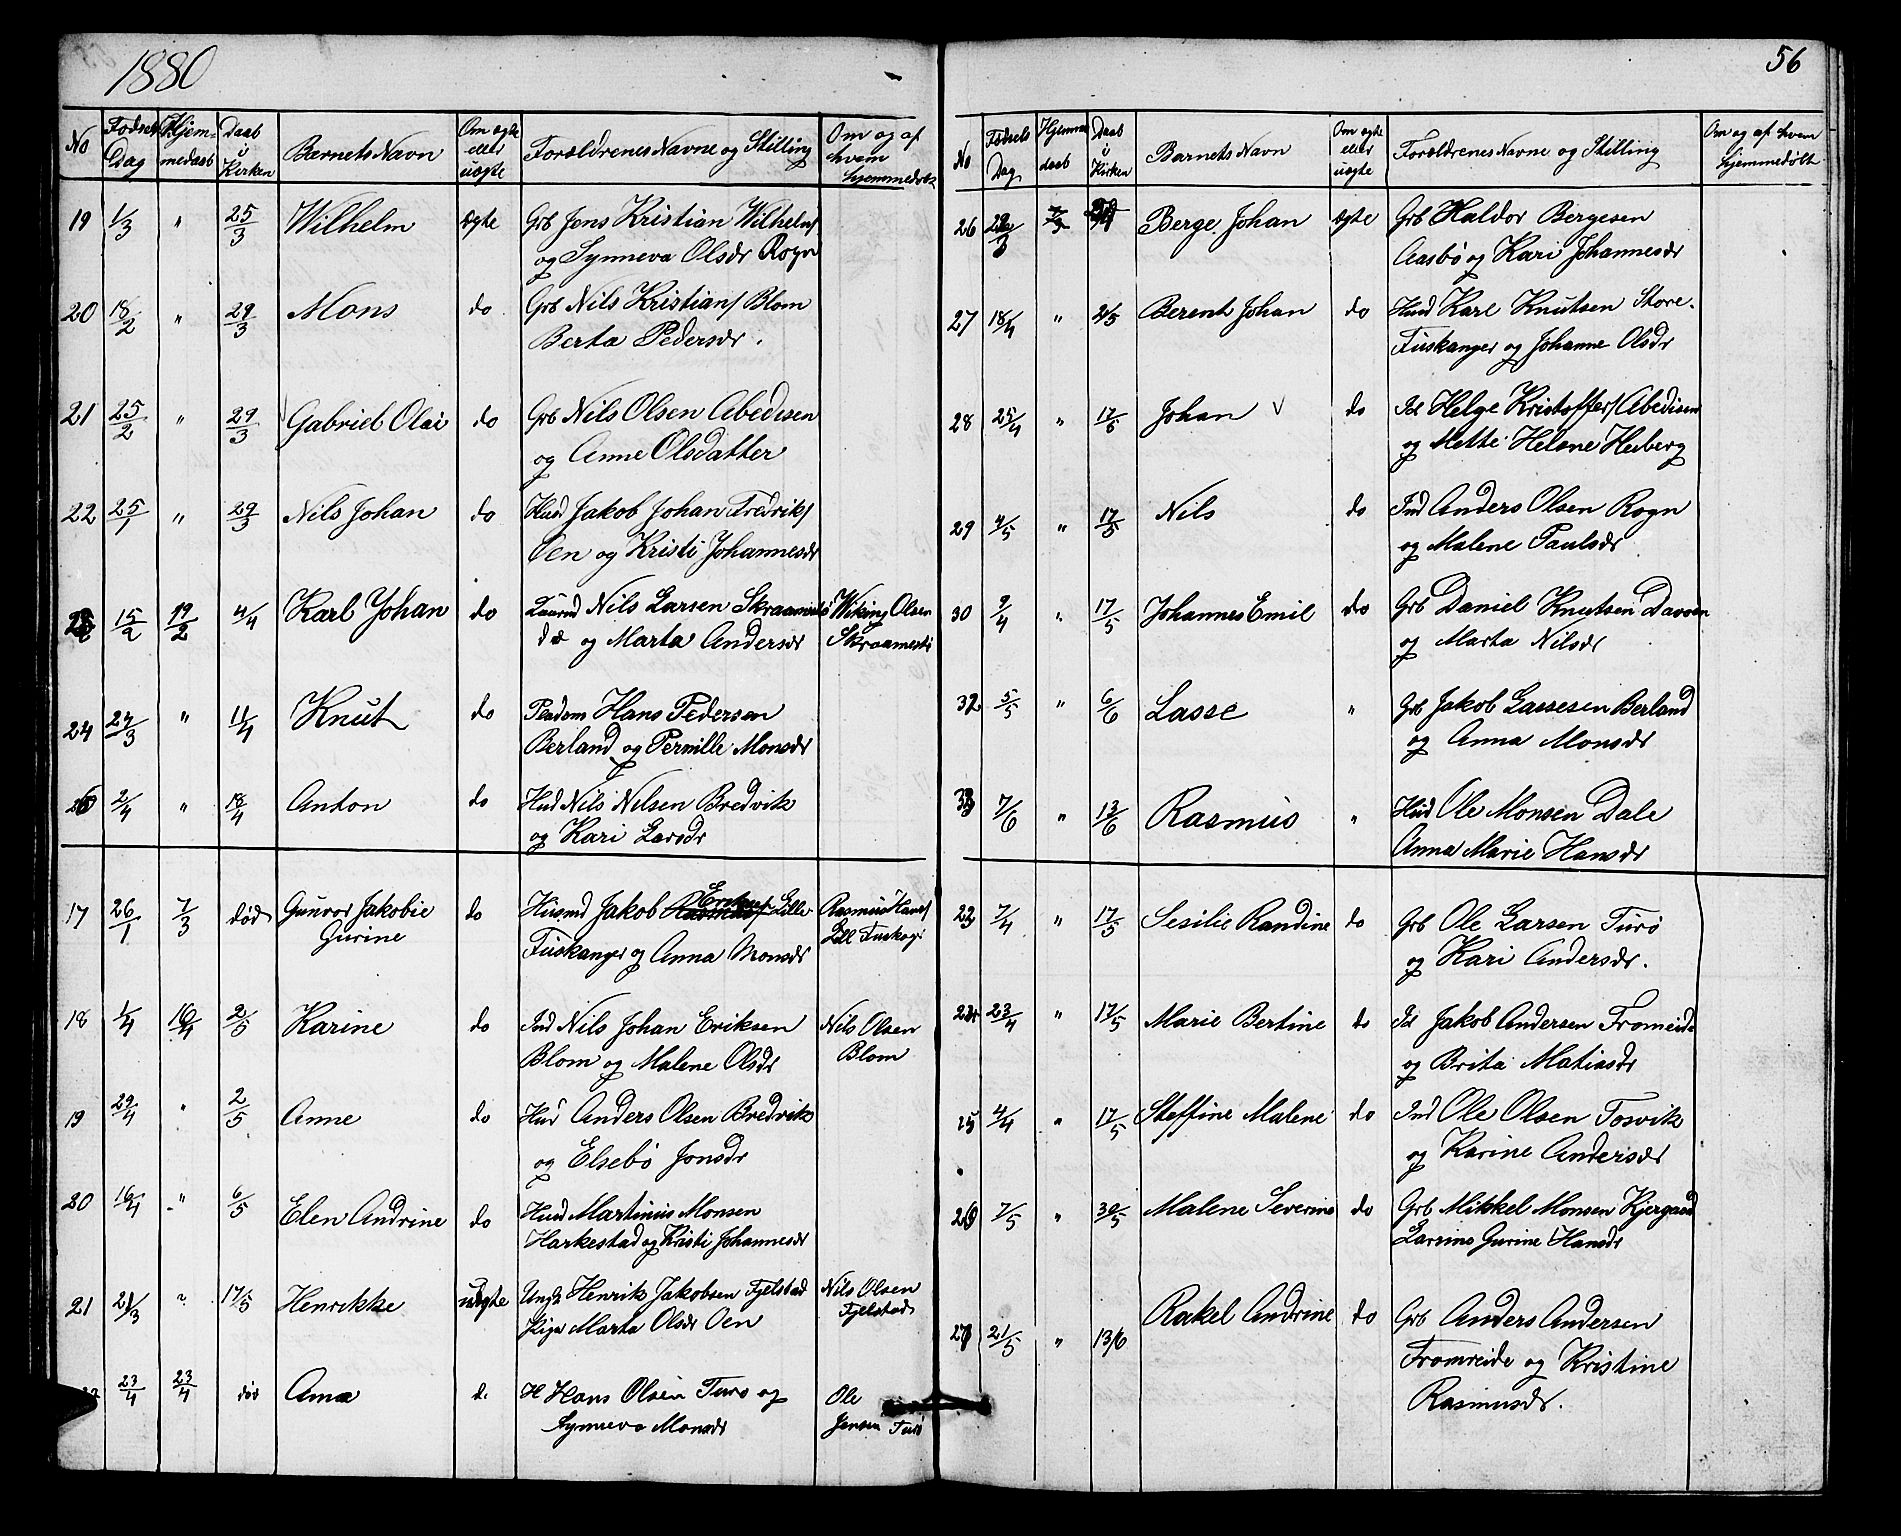 1880
No Fødsels Dag Hjemmedaab Daab i Kirken Barnets Navn Om ægte eller uægte Forældrenes Navne og Stilling Om og af hvem hjemmedøbt
19 1/3 " 25/3 Wilhelm ægte Grb Jens Kristian Wilhelms/
og Synneva Olsdr Rogn
20 18/2 " 29/3 Mons do Grb Nils Kristians/ Blom
Berta Pedersdr.
21 25/2 " 29/3 Gabriel Olai do Grb Nils Olsen Abedisen
og Anne Olsdatter
22 25/1 " 29/3 Nils Johan do Husd Jakob Johan Fredriks/
Oen og Kristi Johannesdr
15/2 19/2 4/4 Karl Johan do Nils Larsen Wiking Olsen
og Marta Andersdr Skraamestø
24 27/3 " 11/4 Knut do Hans Pedersen
Berland og Pernille Monsdr
2/4 " 18/4 Anton do Hud Nils Nilsen Bredvik
og Kari Larsdr
17 26/1 7/3 død Gunvor Jakobie do Husmd Jakob Eriks/ Lille Rasmus Hans/
Gurine Fuskanger og Anna Monsdr Lill Fuskogr
18 1/4 16/4 2/5 Karine do Ind Nils Johan Eriksen Nils Olsen
Blom og Malene Olsdr Blom
19 29/4 " 2/5 Anne do Hud Anders Olsen Bredvik
og Elsebø Jonsdr
20 16/4 " 6/5 Elen Andrine do Husd Martinus Monsen
Harkestad og Kristi Johannesdr
21 21/3 " 17/5 Henrikke uægte Ungk Henrik Jakobsen Fjelstad Nils Olsen
Piga Marta Olsdr Oen Fjelstad
23/4 23/4 død Anna d. H Hans Olsen Turø og Ole
Synneva Monsdr Jensen Turø
56
No Fødsels Dag Hjemme daab Daab i Kirken Barnets Navn Om ægte eller uægte Forældrenes Navne og Stilling Om og af hvem hjemmedøbt
26 Berge Johan ægte Grb Haldor Bergesen
Aasbø og Kari Johannesdr
27 18/4 " 2/5 Berent Johan do Husd Karl Knutsen Store-
Fuskanger og Johanne Olsdr
28 25/4 " 17/5 Johan do Id Helge Kristoffers/ Abedisen
og Mette Helene Heiberg
29 4/5 " 17/5 Nils do Ind Anders Olsen Rogn
og Malene Paulsdr
30 9/4 " 17/5 Johannes Emil do Grb Daniel Knutsen Davøen
og Marta Nilsdr
32 5/5 " 6/6 Lasse " Grb Jakob Lassesen Berland
og Anna Monsdr
33 7/6 " 13/6 Rasmus " Hud Ole Monsen Dale
Anna Marie Hansdr
23 7/4 " 17/5 Sesilie Randine do Grb Ole Larsen Turø
og Kari Andersdr.
24 23/4 " 17/5 Marie Bertine do Id Jakob Andersen Fromreide
og Brita Matiasdr
25 4/4 " 17/5 Steffine Malene do Ind Ole Olsen Tosvik
og Karine Andersdr
26 7/5 " 30/5 Malene Severine do Grb Mikkel Monsen Kjergaard
Larsine Gurine Hansdr
27 21/5 " 13/6 Rakel Andrine do Grb Anders Andersen
Fromreide og Kristine
Rasmusdr.